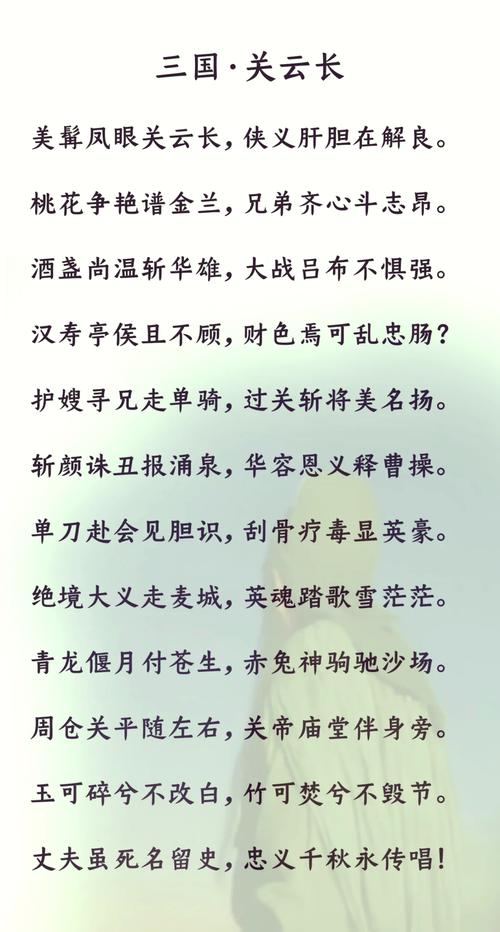 三国·关云长
美髯凤眼关云长，侠义肝胆在解良。
桃花争艳谱金兰，兄弟齐心斗志昂。
酒盏尚温斩华雄，大战吕布不惧强。
汉寿亭侯且不顾，财色焉可乱忠肠？
护嫂寻兄走单骑，过关斩将美名扬。
斩颜诛丑报涌泉，华容恩义释曹操。
单刀赴会见胆识，刮骨疗毒显英豪。
绝境大义走麦城，英魂踏歌雪茫茫。
青龙偃月付苍生，赤兔神驹驰沙场。
周仓关平随左右，关帝庙堂伴身旁。
玉可碎兮不改白，竹可焚兮不毁节。
丈夫虽死名留史，忠义千秋永传唱！